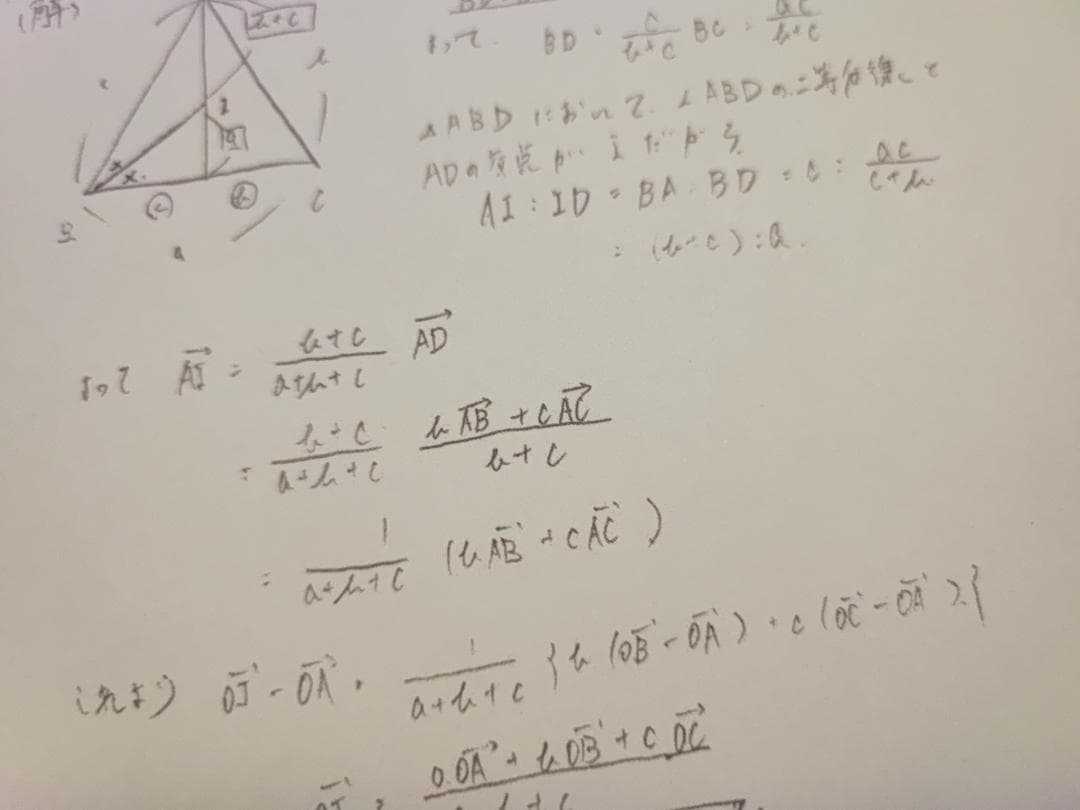 (解)
b+c
c
b
I
a
x
x
B
c
b
C
a
よって. BD = c/(b+c) BC = ac/(b+c)
△ABDにおいて. ∠ABDの二等分線と
ADの交点が IだがらAI : ID = BA : BD = c : ac/(c+b)
= (b+c) : a.
よって AI→ = (b+c)/(a+b+c) AD→
= (b+c)/(a+b+c) (bAB→ + cAC→)/(b+c)
= 1/(a+b+c) (bAB→ + cAC→)
これより OI→ - OA→ = 1/(a+b+c) {b(OB→ - OA→) + c(OC→ - OA→)}
OI→ = (a・OA→ + bOB→ + cOC→)/(a+b+c)